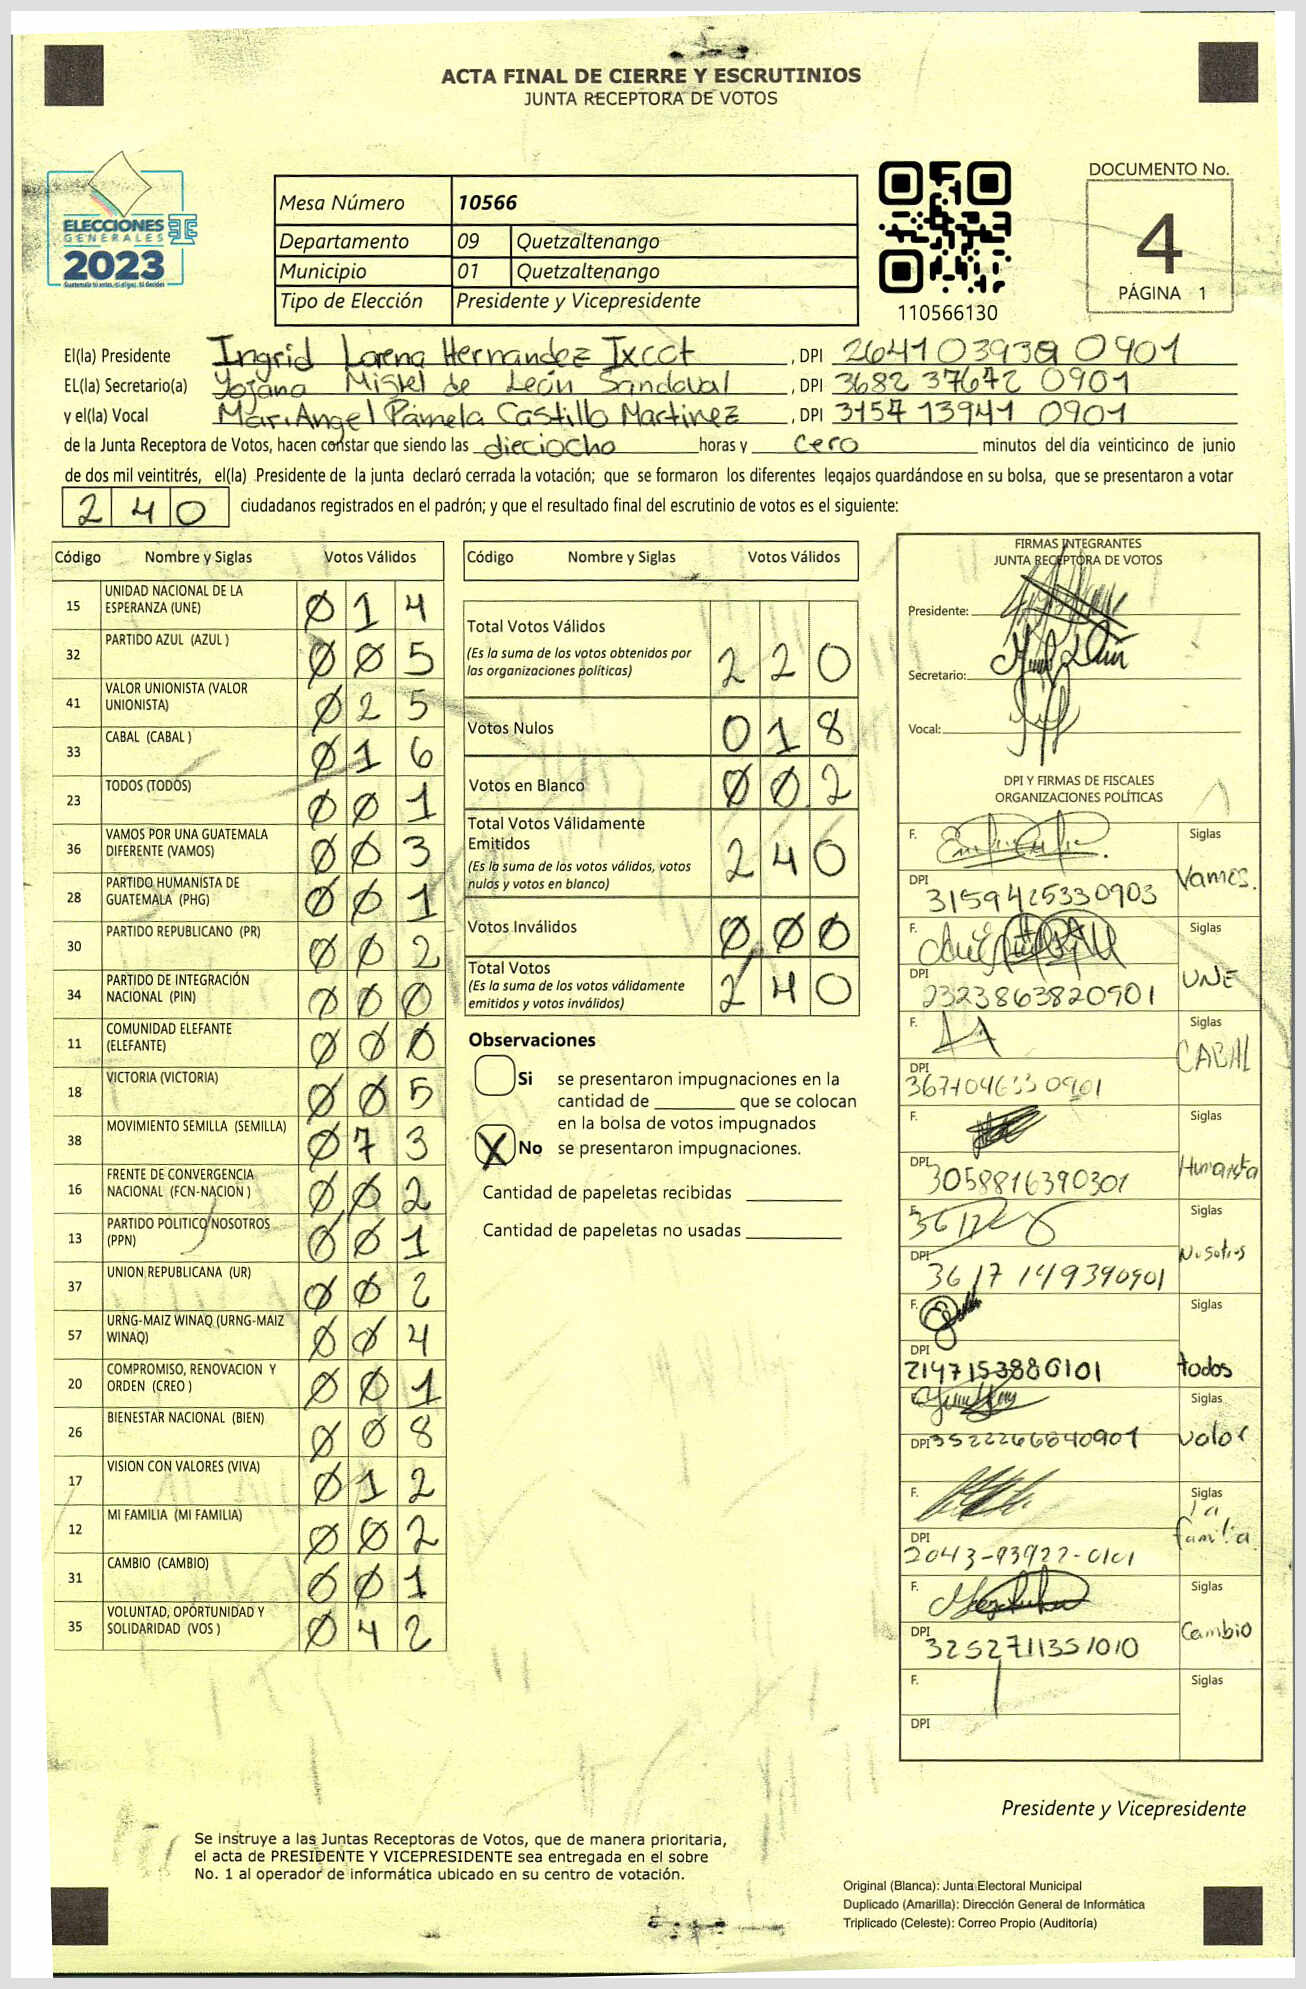 ACTA FINAL DE CIERRE Y ESCRUTINIOS
JUNTA RECEPTORA DE VOTOS
ELECCIONES
GENERALES
2023
Mesa Número 10566
Departamento 09 Quetzaltenango
Municipio 01 Quetzaltenango
Tipo de Elección Presidente y Vicepresidente
110566130
DOCUMENTO No.
4
PÁGINA 1
El(la) Presidente Ingrid Lorena Hernandez Ixcot, DPI 0901
EL(la) Secretario(a) Yojana Mistel de León Sandoval, DPI 3682 37672 0901
y el(la) Vocal MariAngel Pámela Castillo Martinez, DPI 3157 13941 0901
de la Junta Receptora de Votos, hacen constar que siendo las dieciocho horas y cero minutos del día veinticinco de junio
de dos mil veintitrés, el(la) Presidente de la junta declaró cerrada la votación; que se formaron los diferentes legajos guardándose en su bolsa, que se presentaron a votar
240 ciudadanos registrados en el padrón; y que el resultado final del escrutinio de votos es el siguiente:
Código Nombre y Siglas Votos Válidos
15 UNIDAD NACIONAL DE LA ESPERANZA (UNE) 014
32 PARTIDO AZUL (AZUL ) 005
41 VALOR UNIONISTA (VALOR UNIONISTA) 025
33 CABAL (CABAL ) 016
23 TODOS (TODOS) 001
36 VAMOS POR UNA GUATEMALA DIFERENTE (VAMOS) 003
28 PARTIDO HUMANISTA DE GUATEMALA (PHG) 001
30 PARTIDO REPUBLICANO (PR) 002
34 PARTIDO DE INTEGRACIÓN NACIONAL (PIN) 000
11 COMUNIDAD ELEFANTE (ELEFANTE) 000
18 VICTORIA (VICTORIA) 005
38 MOVIMIENTO SEMILLA (SEMILLA) 073
16 FRENTE DE CONVERGENCIA NACIONAL (FCN-NACION ) 002
13 PARTIDO POLITICO NOSOTROS (PPN) 001
37 UNION REPUBLICANA (UR) 002
57 URNG-MAIZ WINAQ (URNG-MAIZ WINAQ) 004
20 COMPROMISO, RENOVACION Y ORDEN (CREO ) 001
26 BIENESTAR NACIONAL (BIEN) 008
17 VISION CON VALORES (VIVA) 012
12 MI FAMILIA (MI FAMILIA) 002
31 CAMBIO (CAMBIO) 001
35 VOLUNTAD, OPORTUNIDAD Y SOLIDARIDAD (VOS ) 042
Código Nombre y Siglas Votos Válidos
Total Votos Válidos 220
(Es la suma de los votos obtenidos por
las organizaciones políticas)
Votos Nulos 018
Votos en Blanco 002
Total Votos Válidamente
Emitidos 240
(Es la suma de los votos válidos, votos
nulos y votos en blanco)
Votos Inválidos 000
Total Votos 240
(Es la suma de los votos válidamente
emitidos y votos inválidos)
Observaciones
Si se presentaron impugnaciones en la
cantidad de ________ que se colocan
en la bolsa de votos impugnados
X No se presentaron impugnaciones.
Cantidad de papeletas recibidas
Cantidad de papeletas no usadas
FIRMAS INTEGRANTES
JUNTA RECEPTORA DE VOTOS
Presidente:
Secretario:
Vocal:
DPI Y FIRMAS DE FISCALES
ORGANIZACIONES POLÍTICAS
F. Siglas
DPI 3159425330903 Vamos.
F. Siglas
DPI 2323863820901 UNE
F. Siglas
DPI CABAL
F. Siglas
DPI 3058816390301 Humanista
F. Siglas
DPI 3617149390901 Nosotros
F. Siglas
DPI 2147153880101 todos
F. Siglas
DPI 3522266840901 Valor
F. Siglas
DPI 2043-93922-0101 la familia
F. Siglas
DPI 3252711351010 Cambio
F. Siglas
DPI
Presidente y Vicepresidente
Se instruye a las Juntas Receptoras de Votos, que de manera prioritaria,
el acta de PRESIDENTE Y VICEPRESIDENTE sea entregada en el sobre
No. 1 al operador de informática ubicado en su centro de votación.
Original (Blanca): Junta Electoral Municipal
Duplicado (Amarilla): Dirección General de Informática
Triplicado (Celeste): Correo Propio (Auditoría)